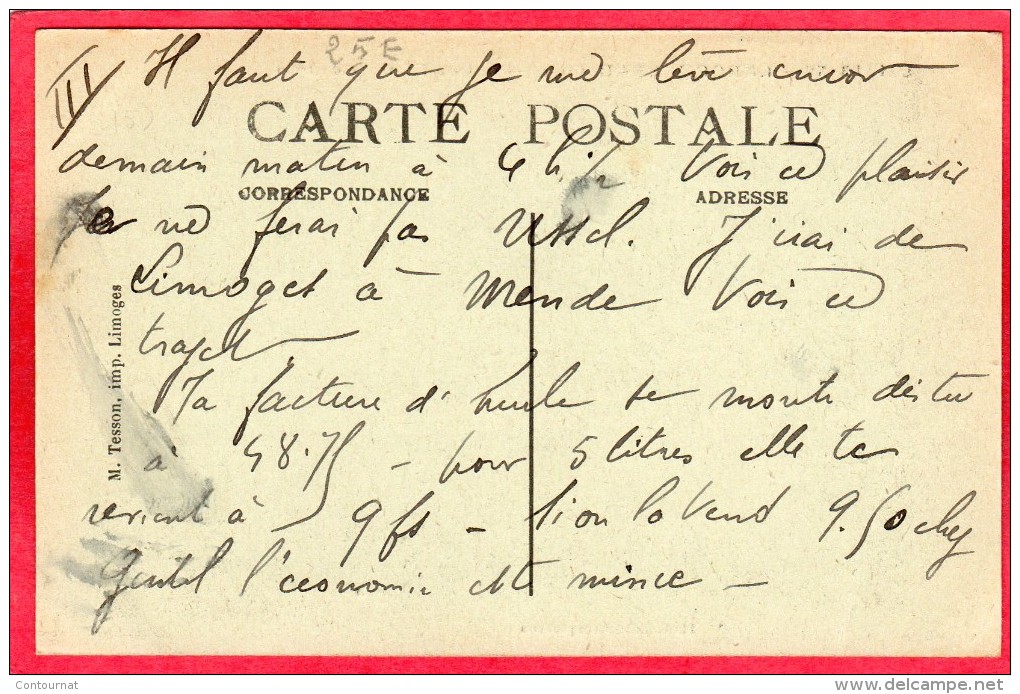 25E
III/ Il faut que je me lève encor
CARTE POSTALE
demain matin à 4 h 1/2 Vois ce plaisir
CORRESPONDANCE
ADRESSE
Je ne ferai pas Ussel. J'irai de
Limoges à Mende Vois ce
trajet
M. Tesson, imp. Limoges
Ta facture d'huile se monte dis tu
à 48.75 – pour 5 litres elle te
revient à 9 fs – si on la vend 9.50 chez
Gentil l'économie est mince –
Contournat
delcampe.net